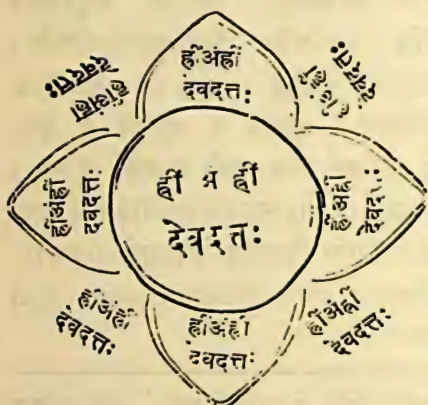 ह्रींअंह्रीं
देवदत्तः
ह्रींअंह्रीं
देवदत्तः
ह्रींअंह्रीं
देवदत्तः
ह्रींअंह्रीं
देवदत्तः
ह्रीं अं ह्रीं
देवदत्तः
ह्रींअंह्रीं
देवदत्तः
ह्रींअंह्रीं
देवदत्तः
ह्रींअंह्रीं
देवदत्तः
ह्रींअंह्रीं
देवदत्तः